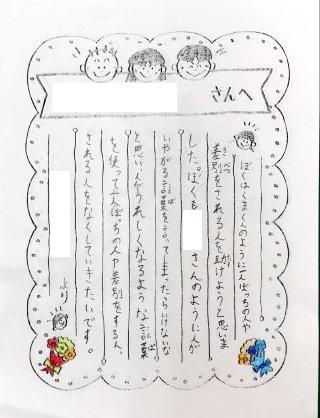 さんへ
ぼくはくまくんのように一人ぼっちの人や
差別をされる人を助けようと思いま
した。ぼくも さんのように人が
いやがる言葉を言ってしまったらいけないな
と思い人がうれしくなるような言葉
を使って一人ぼっちの人や差別をする人、
される人をなくしていきたいです。
より